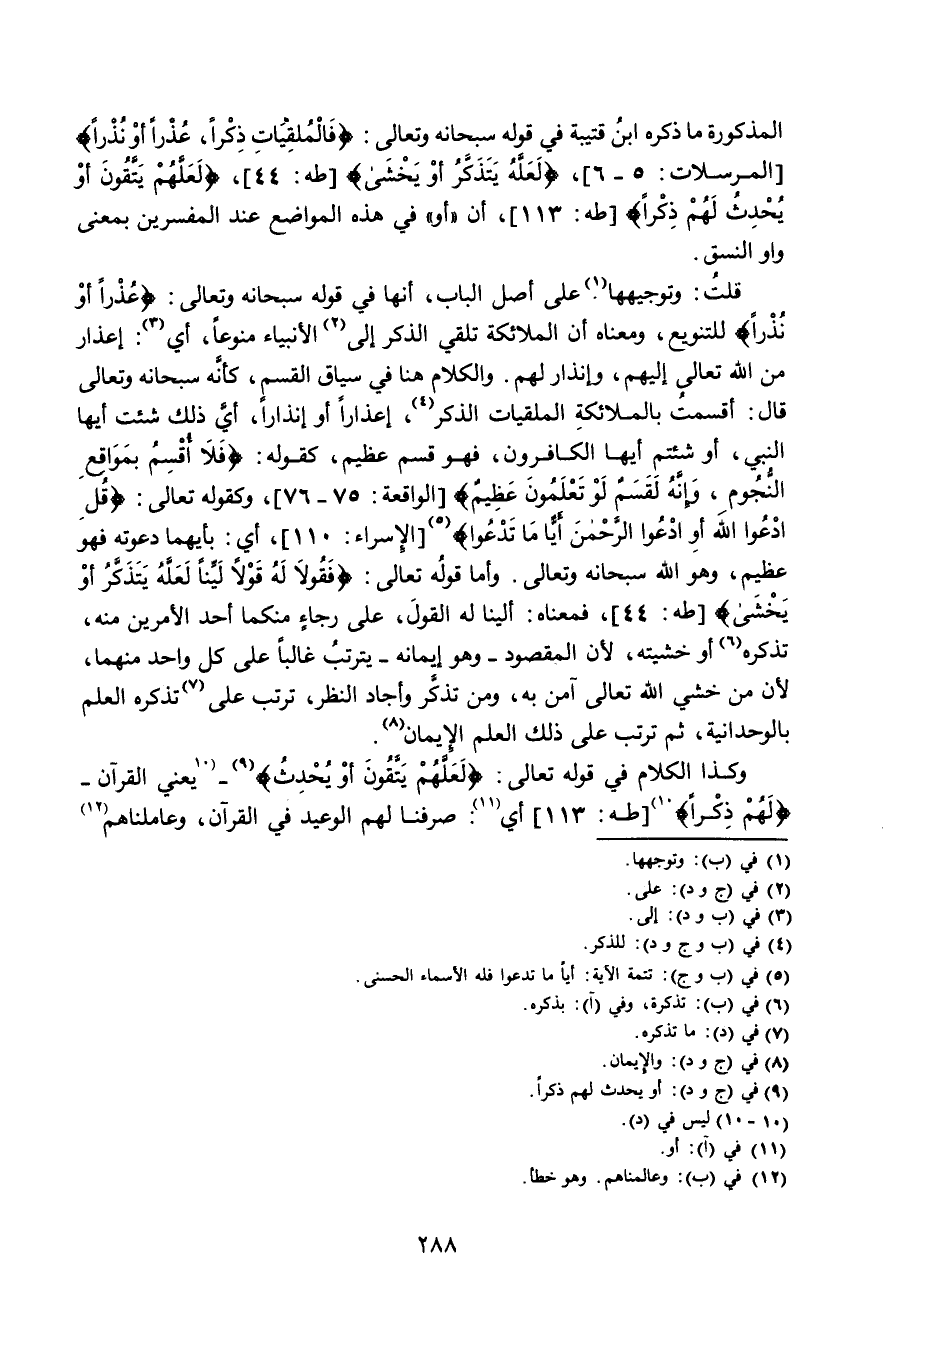 المذكورة ما ذكره ابنُ قتيبة في قوله سبحانه وتعالى : ﴿فَالْمُلقِيَاتِ ذِكْراً، عُذْراً أوْ نُذْراً﴾
[المرسلات: ٥ - ٦]، ﴿لَعَلَّهُ يَتَذَكَّرُ أوْ يَخْشَىٰ﴾ [طه: ٤٤]، ﴿لَعَلَّهُمْ يَتَّقُونَ أوْ
يُحْدِثُ لَهُمْ ذِكْراً﴾ [طه: ١١٣]، أن «أو» في هذه المواضع عند المفسرين بمعنى
واو النسق.
قلتُ: وتوجيهها(١) على أصل الباب، أنها في قوله سبحانه وتعالى: ﴿عُذْراً أوْ
نُذْراً﴾ للتنويع، ومعناه أن الملائكة تلقي الذكر إلى(٢) الأنبياء منوعاً، أي(٣): إعذار
من الله تعالى إليهم، وإنذار لهم. والكلام هنا في سياق القسم، كأنَّه سبحانه وتعالى
قال: أقسمتُ بالملائكةِ الملقيات الذكر(٤)، إعذاراً أو إنذاراً، أيَّ ذلك شئت أيها
النبي، أو شئتم أيها الكافرون، فهو قسم عظيم، كقوله: ﴿فَلَا أُقْسِمُ بِمَوَاقِعِ
النُّجُومِ، وَإِنَّهُ لَقَسَمٌ لَوْ تَعْلَمُونَ عَظِيمٌ﴾ [الواقعة: ٧٥ - ٧٦]، وكقوله تعالى: ﴿قُلِ
ادْعُوا اللهَ أوِ ادْعُوا الرَّحْمٰنَ أيًّا مَا تَدْعُوا﴾(٥) [الإسراء: ١١٠]، أي: بأيهما دعوته فهو
عظيم، وهو الله سبحانه وتعالى. وأما قولُه تعالى: ﴿فَقُولاَ لَهُ قَوْلاً لَيِّناً لَعَلَّهُ يَتَذَكَّرُ أوْ
يَخْشَىٰ﴾ [طه: ٤٤]، فمعناه: ألينا له القولَ، على رجاءٍ منكما أحد الأمرين منه،
تذكره(٦) أو خشيته، لأن المقصود - وهو إيمانه - يترتبُ غالباً على كل واحد منهما،
لأن من خشي الله تعالى آمن به، ومن تذكَّر وأجاد النظر، ترتب على(٧) تذكره العلم
بالوحدانية، ثم ترتب على ذلك العلم الإيمان(٨).
وكذا الكلام في قوله تعالى: ﴿لَعَلَّهُمْ يَتَّقُونَ أوْ يُحْدِثُ﴾(٩) - (١٠يعني القرآن -
﴿لَهُمْ ذِكْراً﴾١٠) [طه: ١١٣] أي(١١): صرفنا لهم الوعيد في القرآن، وعاملناهم(١٢)
(١) في (ب): وتوجهها.
(٢) في (ج و د): على.
(٣) في (ب و د): إلى.
(٤) في (ب و ج و د): للذكر.
(٥) في (ب و ج): تتمة الآية: أياً ما تدعوا فله الأسماء الحسنى.
(٦) في (ب): تذكرة، وفي (آ): بذكره.
(٧) في (د): ما تذكره.
(٨) في (ج و د): والإيمان.
(٩) في (ج و د): أو يحدث لهم ذكراً.
(١٠ - ١٠) ليس في (د).
(١١) في (آ): أو.
(١٢) في (ب): وعالمناهم. وهو خطأ.
٢٨٨